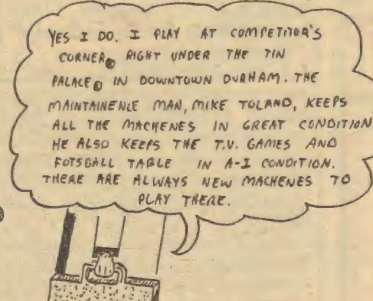 YES I DO. I PLAY AT COMPETITOR'S
CORNER, RIGHT UNDER THE TIN
PALACE, IN DOWNTOWN DURHAM. THE
MAINTAINENLE MAN, MIKE TOLAND, KEEPS
ALL THE MACHENES IN GREAT CONDITION
HE ALSO KEEPS THE T.V. GAMES AND
FOTSBALL TABLE IN A-I CONDITION.
THERE ARE ALWAYS NEW MACHENES TO
PLAY THERE.